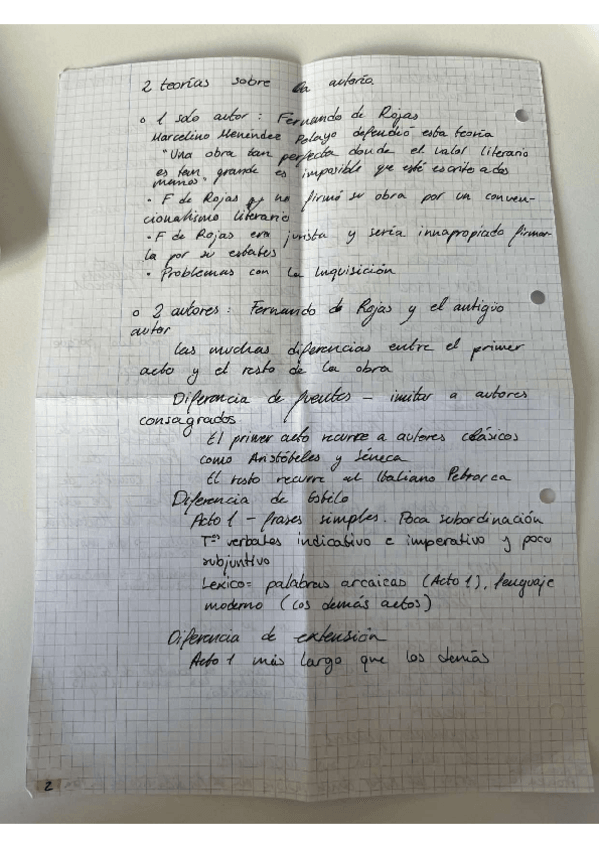 2 teorías sobre la autoría
o 1 solo autor : Fernando de Rojas
Marcelino Menéndez Pelayo defendió esta teoría
"Una obra tan perfecta donde el valor literario
es tan grande es imposible que esté escrito a dos
manos"
· F de Rojas no firmó su obra por un conven-
cionalismo literario
· F de Rojas era jurista y sería innapropiado firmar-
la por su estatus
· Problemas con la Inquisición
o 2 autores : Fernando de Rojas y el antigüo
autor
Las muchas diferencias entre el primer
acto y el resto de la obra
Diferencia de fuentes – imitar a autores
consagrados
El primer acto recurre a autores clásicos
como Aristóteles y Séneca
El resto recurre al Italiano Petrarca
Diferencia de Estilo
Acto 1 – frases simples. Poca subordinación
Tºs verbales indicativo e imperativo y poco
subjuntivo
Lexico = palabras arcaicas (Acto 1), lenguaje
moderno (los demás actos)
Diferencia de extensión
Acto 1 más largo que los demás
2